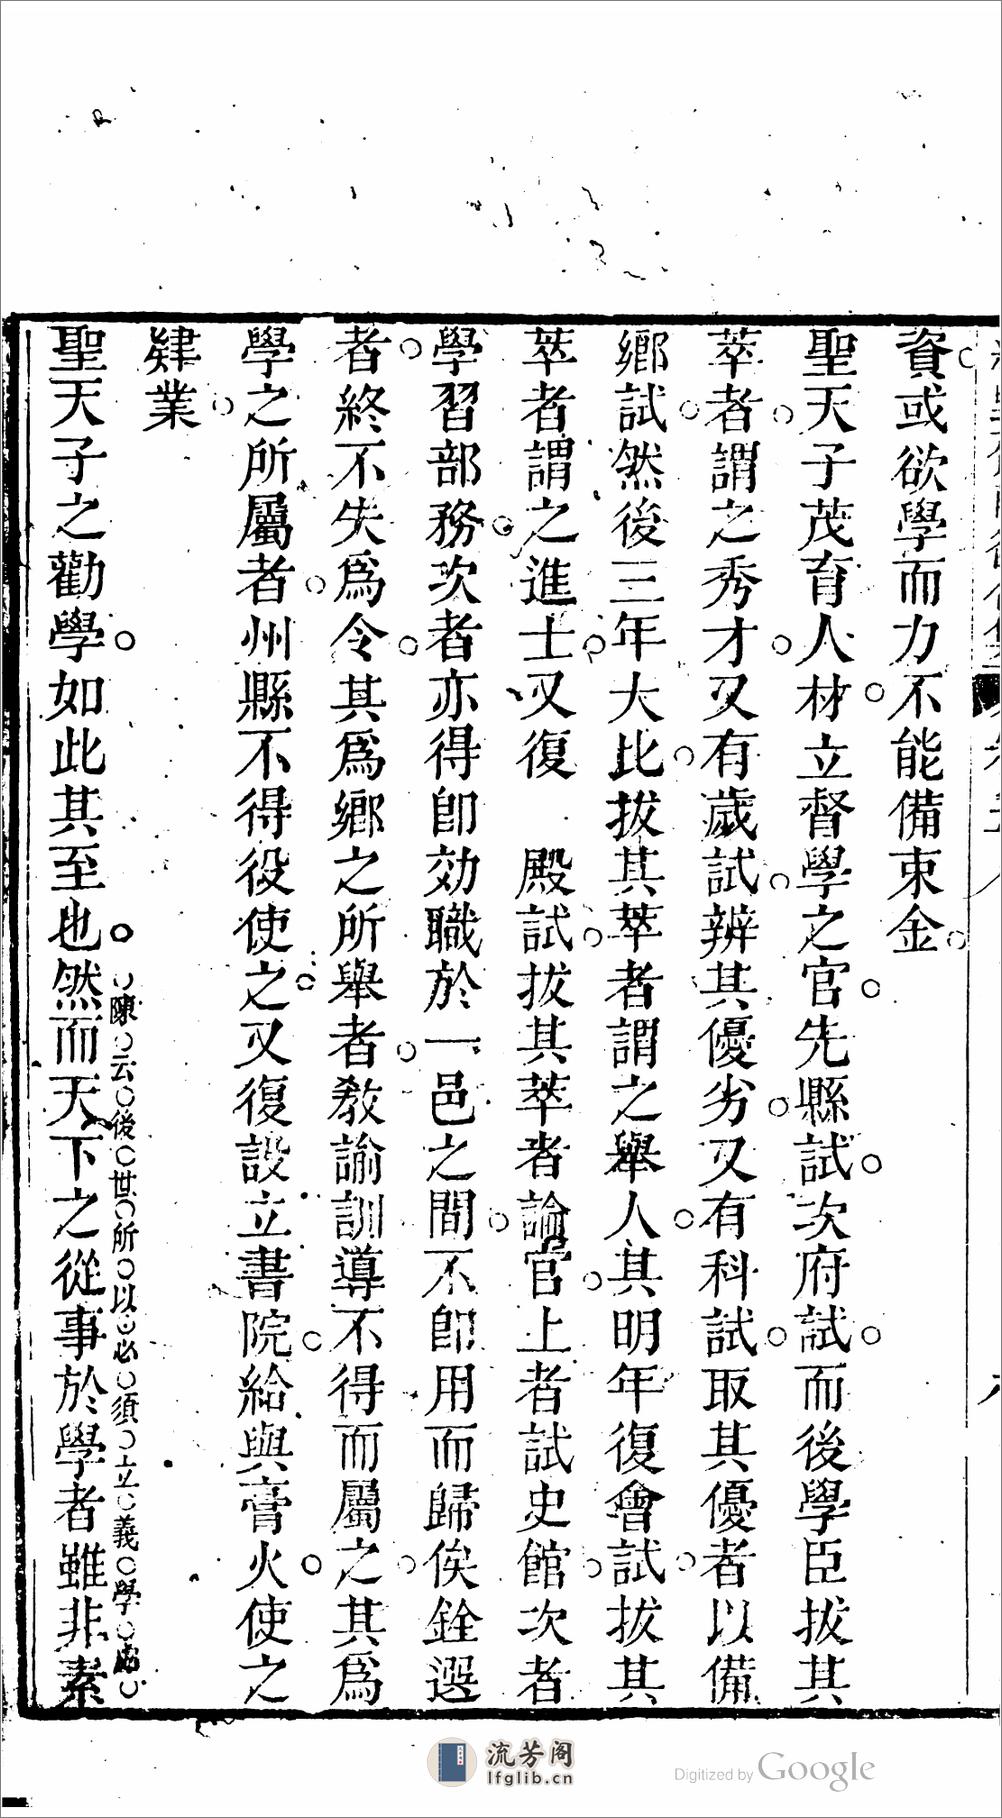 資或欲學而力不能備束金
聖天子茂育人材立督學之官先縣試次府試而後學臣拔其
萃者謂之秀才又有歲試辨其優劣又有科試取其優者以備
鄉試然後三年大比拔其萃者謂之舉人其明年復會試拔其
萃者謂之進士又復 殿試拔其萃者論官上者試史館次者
學習部務次者亦得卽効職於一邑之間不卽用而歸俟銓選
者終不失爲令其爲鄉之所舉者敎諭訓導不得而屬之其爲
學之所屬者州縣不得役使之又復設立書院給與膏火使之
肄業
聖天子之勸學如此其至也
陳云後世所以必須立義學處
然而天下之從事於學者雖非素
流芳阁
lfglib.cn
Digitized by Google